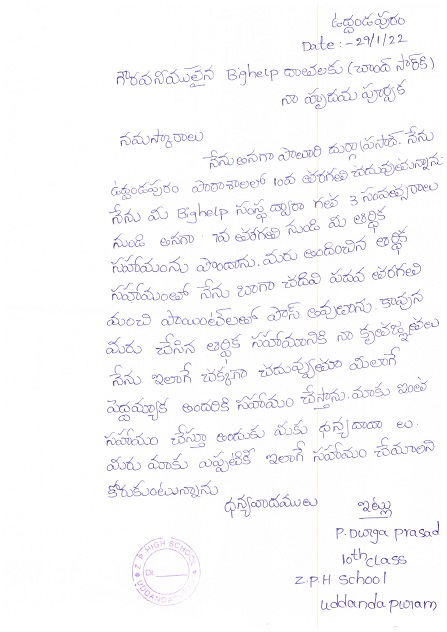 ఉద్దండపురం
Date:-29/1/22
గౌరవనీయులైన Bighelp దాతలకు (చాంద్ సార్‌కి)
నా హృదయ పూర్వక
నమస్కారాలు
నేను అనగా పాలూరి దుర్గాప్రసాద్. నేను
ఉద్దండపురం పాఠాశాలలో 10వ తరగతి చదువుతున్నాను
నేను మీ Bighelp సంస్థ ద్వారా గత 3 సంవత్సరాలు
నుండి అనగా 7వ తరగతి నుండి మీ ఆర్థిక
సహాయంను పొందాను. మీరు అందించిన ఆర్థిక
సహాయంతో నేను బాగా చదివి పదవ తరగతి
మంచి పాయింట్‌లతో పాస్ అవుతాను. కావున
మీరు చేసిన ఆర్థిక సహాయానికి నా కృతజ్ఞతలు
నేను ఇలాగే చక్కగా చదువ్వుతూ మీలాగే
పెద్దయ్యాక అందరికి సహాయం చేస్తాను. మాకు ఇంత
సహాయం చేస్తూ అందుకు మీకు ధన్యదాదా లు.
మీరు మాకు ఎప్పుటికీ ఇలాగే సహాయం చేయాలని
కోరుకుంటున్నాను
ధన్యవాదములు
ఇట్లు
P. Durga prasad
10th class
Z.P.H School
uddandapuram
Z.P HIGH SCHOOL
Dt.